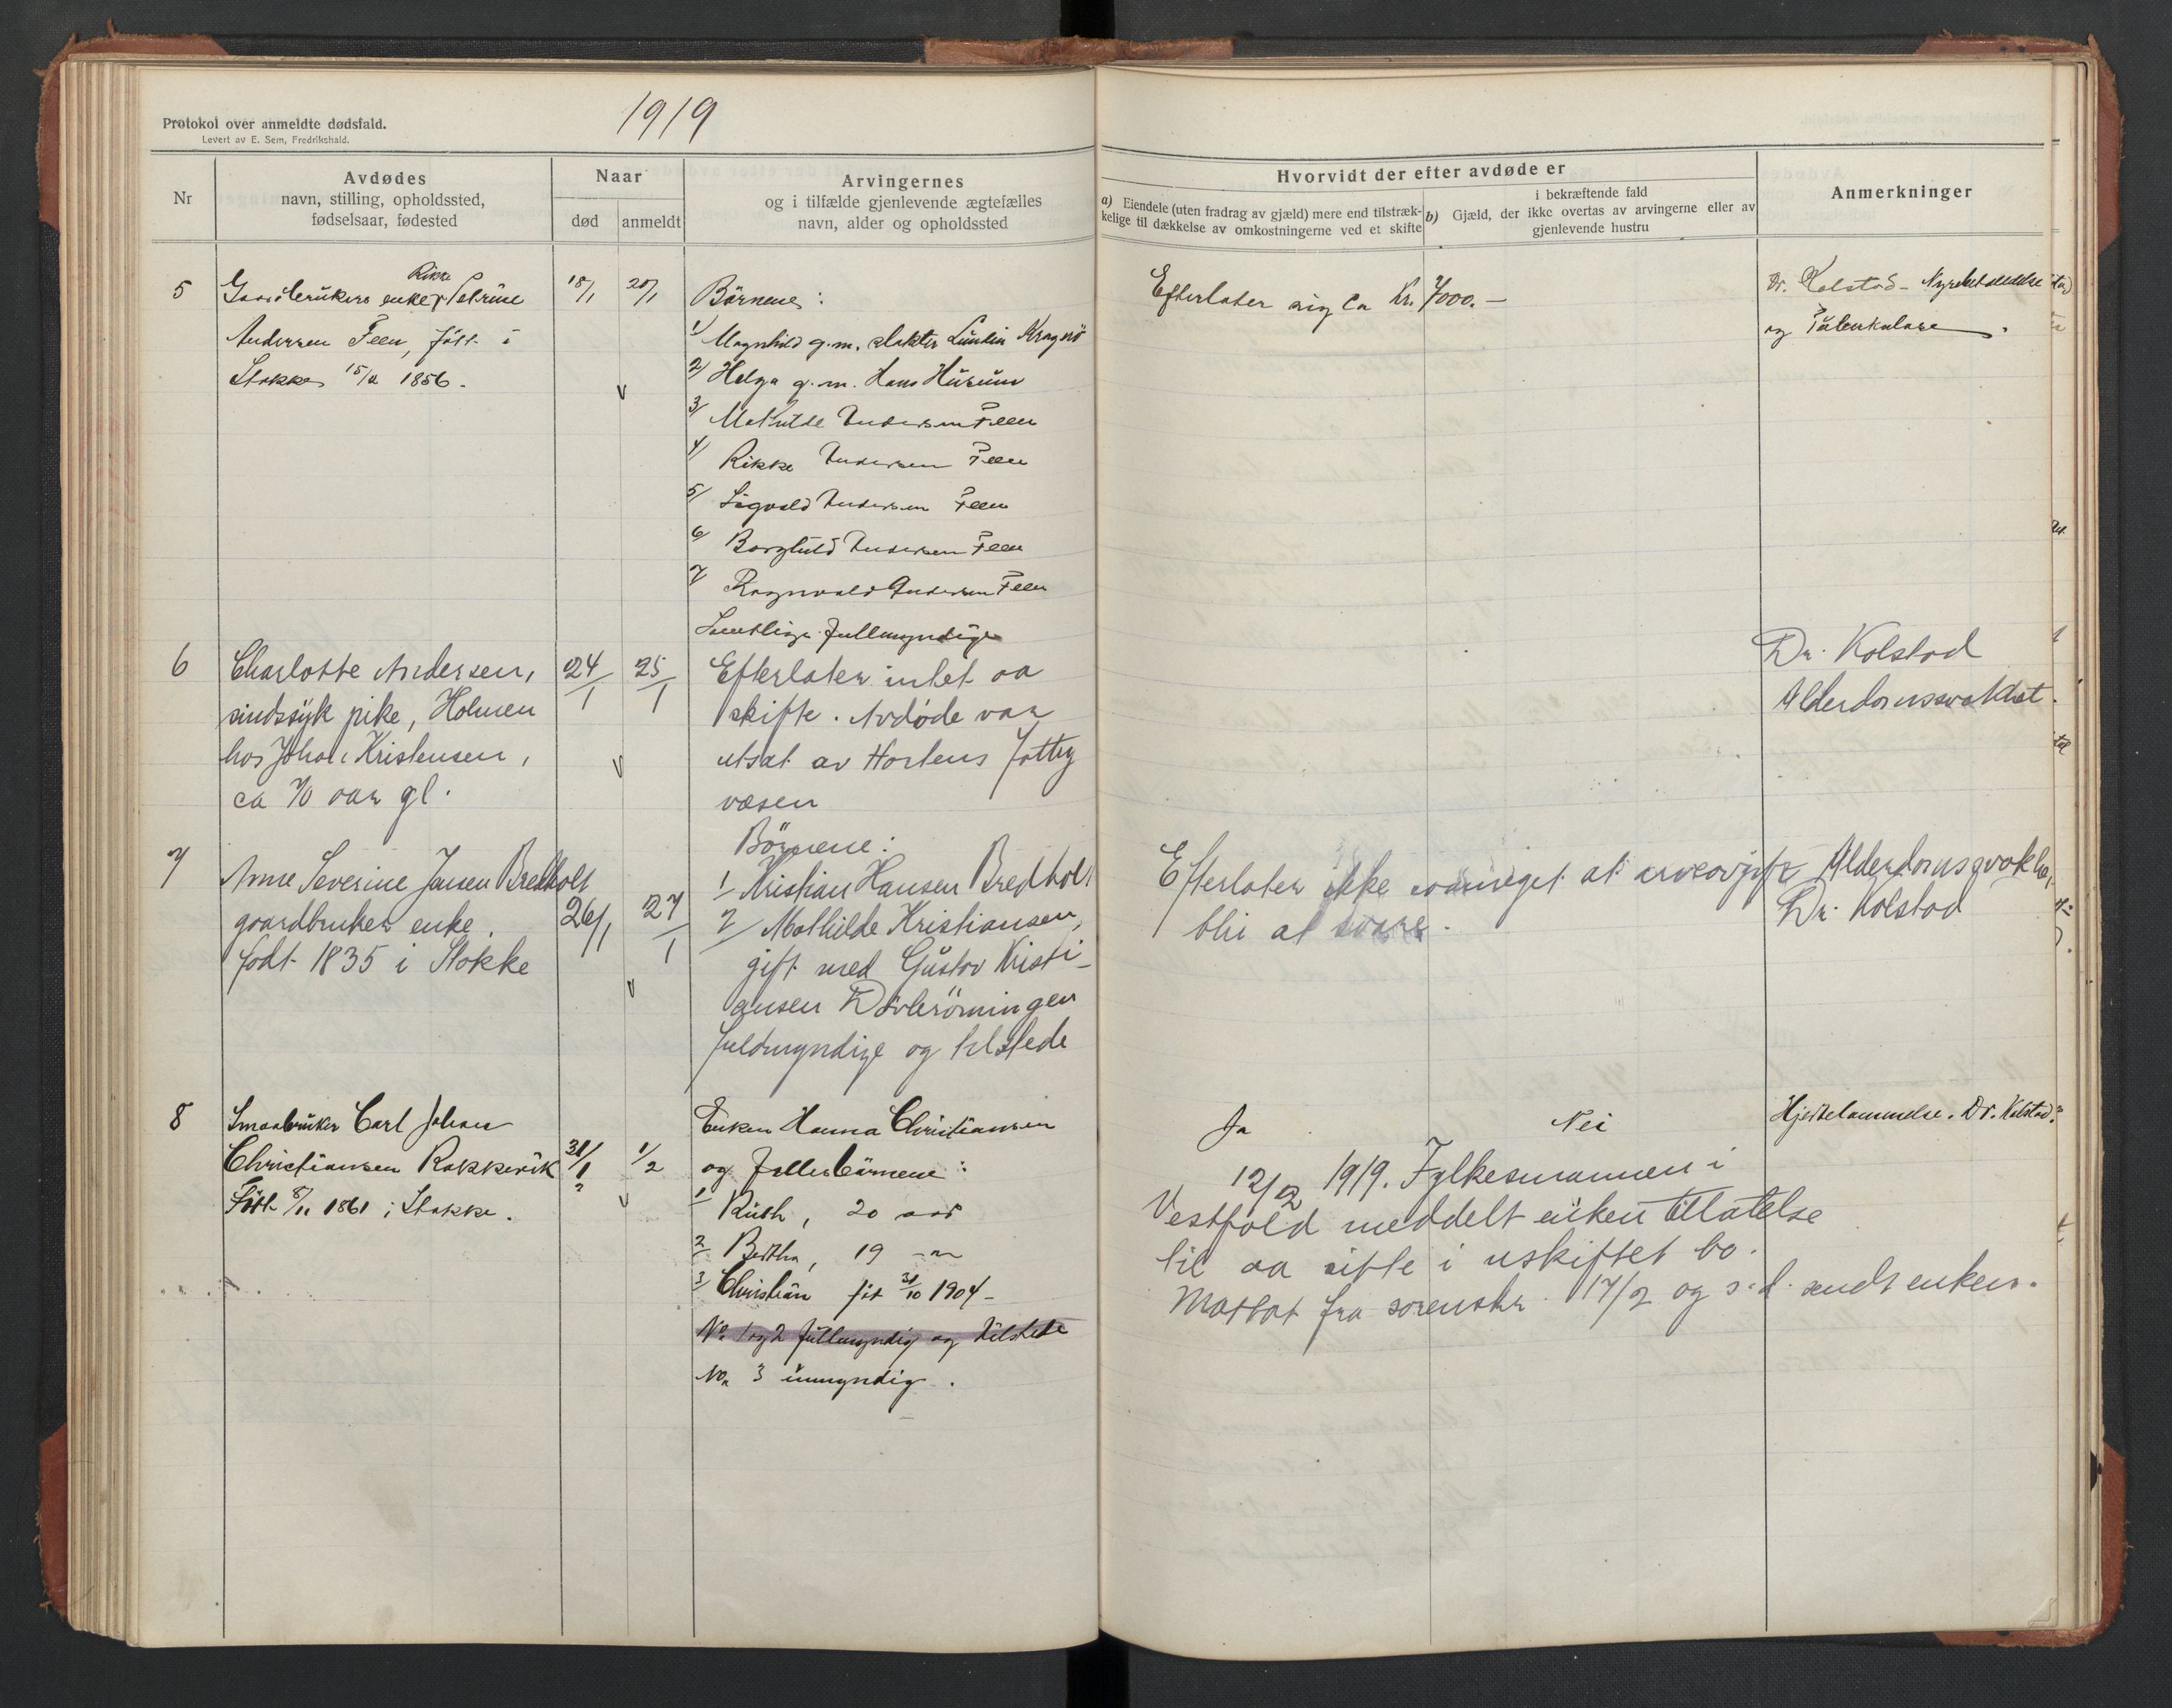 1919
Protokol over anmeldte dødsfald.
Levert av E. Sem, Fredrikshald.
Nr
Avdødes
navn, stilling, opholdssted,
fødselsaar, fødested
Naar
død
anmeldt
Arvingernes
og i tilfælde gjenlevende ægtefælles
navn, alder og opholdssted
Hvorvidt der efter avdøde er
a) Eiendele (uten fradrag av gjæld) mere end tilstræk-
kelige til dækkelse av omkostningerne ved et skifte
i bekræftende fald
b) Gjæld, der ikke overtas av arvingerne eller av
gjenlevende hustru
Anmerkninger
5
Rikke
Gaardbrukers enke Petrine
Andersen Feen, født i
Stokke 15/2 1856.
18/1
20/1
v
Börnene:
1/ Magnhild g.m. slakter Lundin
2/ Helga g.m. Hans Hurum
3/ Mathilde Andersen Feen
4/ Rikke Andersen Feen
5/ Sigvald Andersen Feen
6/ Borghild Andersen Feen
7/ Ragnvald Andersen Feen
Samtlige fullmyndige
Efterlater sig ca Kr. 7000.-
Dr. Kolstad - Nyrebetændelse
og Tuberkulose.
6
Charlotte Andersen,
sindssyk pike, Holmen
hos Johan Kristensen,
ca 70 aar gl.
24/1
25/1
v
Efterlater intet aa
skifte. Avdöde var
utsat av Hortens fattig
væsen
Dr. Kolstad
Alderdomssvakhet.
7
Anne Severine Jensen Bredholt
gaardbruker enke.
født 1835 i Stokke
26/1
27/1
v
Börnene:
1/ Kristian Hansen Bredholt
2/ Mathilde Kristiansen,
gift med Gustav Kristi-
ansen
fuldmyndige og tilstede
Efterlater ikke saameget at arveavgift
bli at svare.
Alderdomssvakhet
Dr. Kolstad
8
Smaabruker Carl Johan
Christiansen Rakkevik
Født 8/11 1861 i Stokke.
31/1
1/2
v
Enken Hanna Christiansen
og fællesbarnene:
1/ Ruth, 20 aar
2/ Bertha, 19 -"-
3/ Christian föt 31/10 1904-
No 1 og 2 fullmyndig og tilstede
No. 3 umyndig.
Ja
Nei
12/2 1919. Fylkesmannen i
Vestfold meddelt enken tillatelse
til aa sitte i uskiftet bo.
Mottat fra sorenskr. 17/2 og s.d. sendt enken.
Hjertelammelse. Dr. Kolstad.